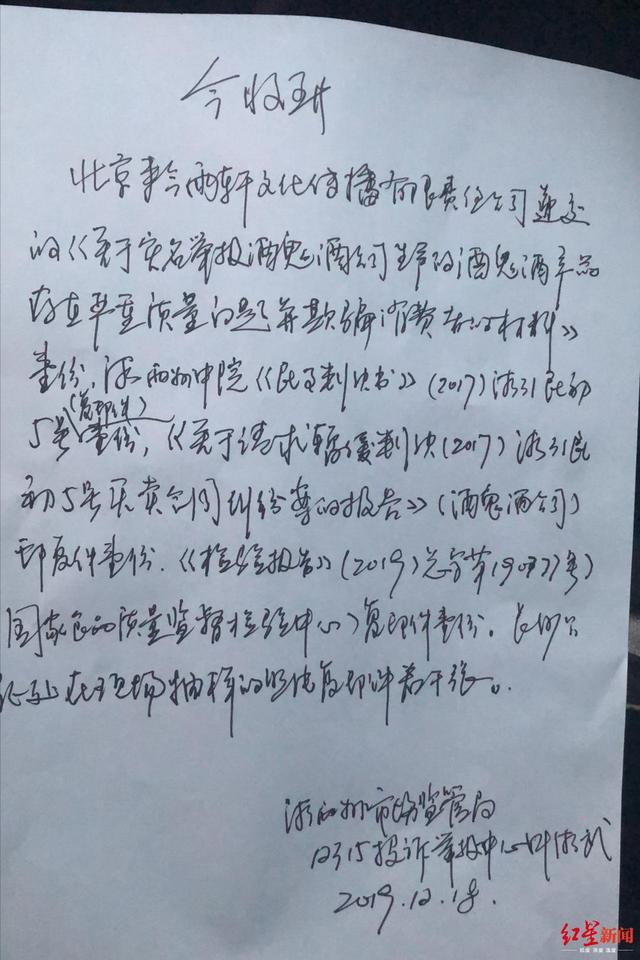 今收到
北京来今雨轩文化传播有限责任公司递交
的《关于实名举报酒鬼酒公司生产的酒鬼酒产品
存在严重质量问题并欺骗消费者的材料》
壹份，湘西州中院《民事判决书》（2017）湘31民初
5号（复印件）壹份，《关于请求暂缓判决（2017）湘31民
初5号买卖合同纠纷案的报告》（酒鬼酒公司）
印复件壹份.《检验报告》（2019）总字第19077号）
国家食品质量监督检验中心）复印件壹份。长沙公
证处在现场抽样的照片复印件若干张。
湘西州市场监管局
12315投诉举报中心 叶
2019.12.18.
红星新闻